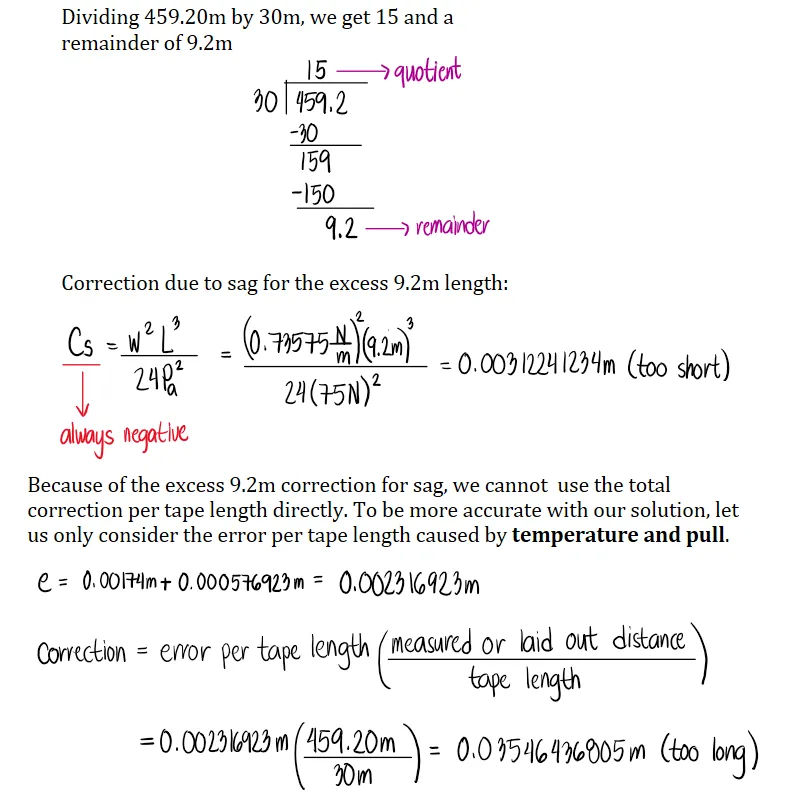 Dividing 459.20m by 30m, we get 15 and a
remainder of 9.2m
15 → quotient
30 459.2
-30
159
-150
9.2 → remainder
Correction due to sag for the excess 9.2m length:
Cs = W² L³ / 24Pa² = (0.73575 N/m)² (9.2m)³ / 24(75N)² = 0.00312241234m (too short)
always negative
Because of the excess 9.2m correction for sag, we cannot use the total
correction per tape length directly. To be more accurate with our solution, let
us only consider the error per tape length caused by temperature and pull.
e = 0.00174m + 0.000576923m = 0.002316923m
Correction = error per tape length (measured or laid out distance / tape length)
= 0.002316923m (459.20m / 30m) = 0.03546436805m (too long)